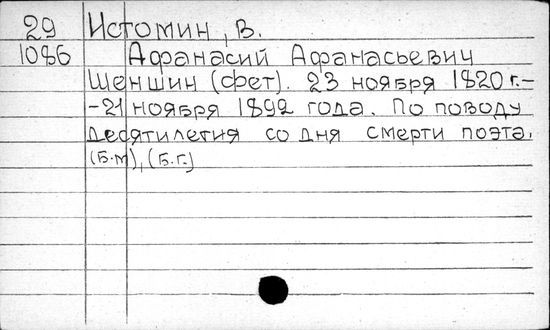 29 Истомин, В.
1086 Афанасий Афанасьевич
Шеншин (Фет). 23 ноября 1820 г.-
-21 ноября 1892 года. По поводу
десятилетия со дня смерти поэта.
(Б.м), (Б.г.)